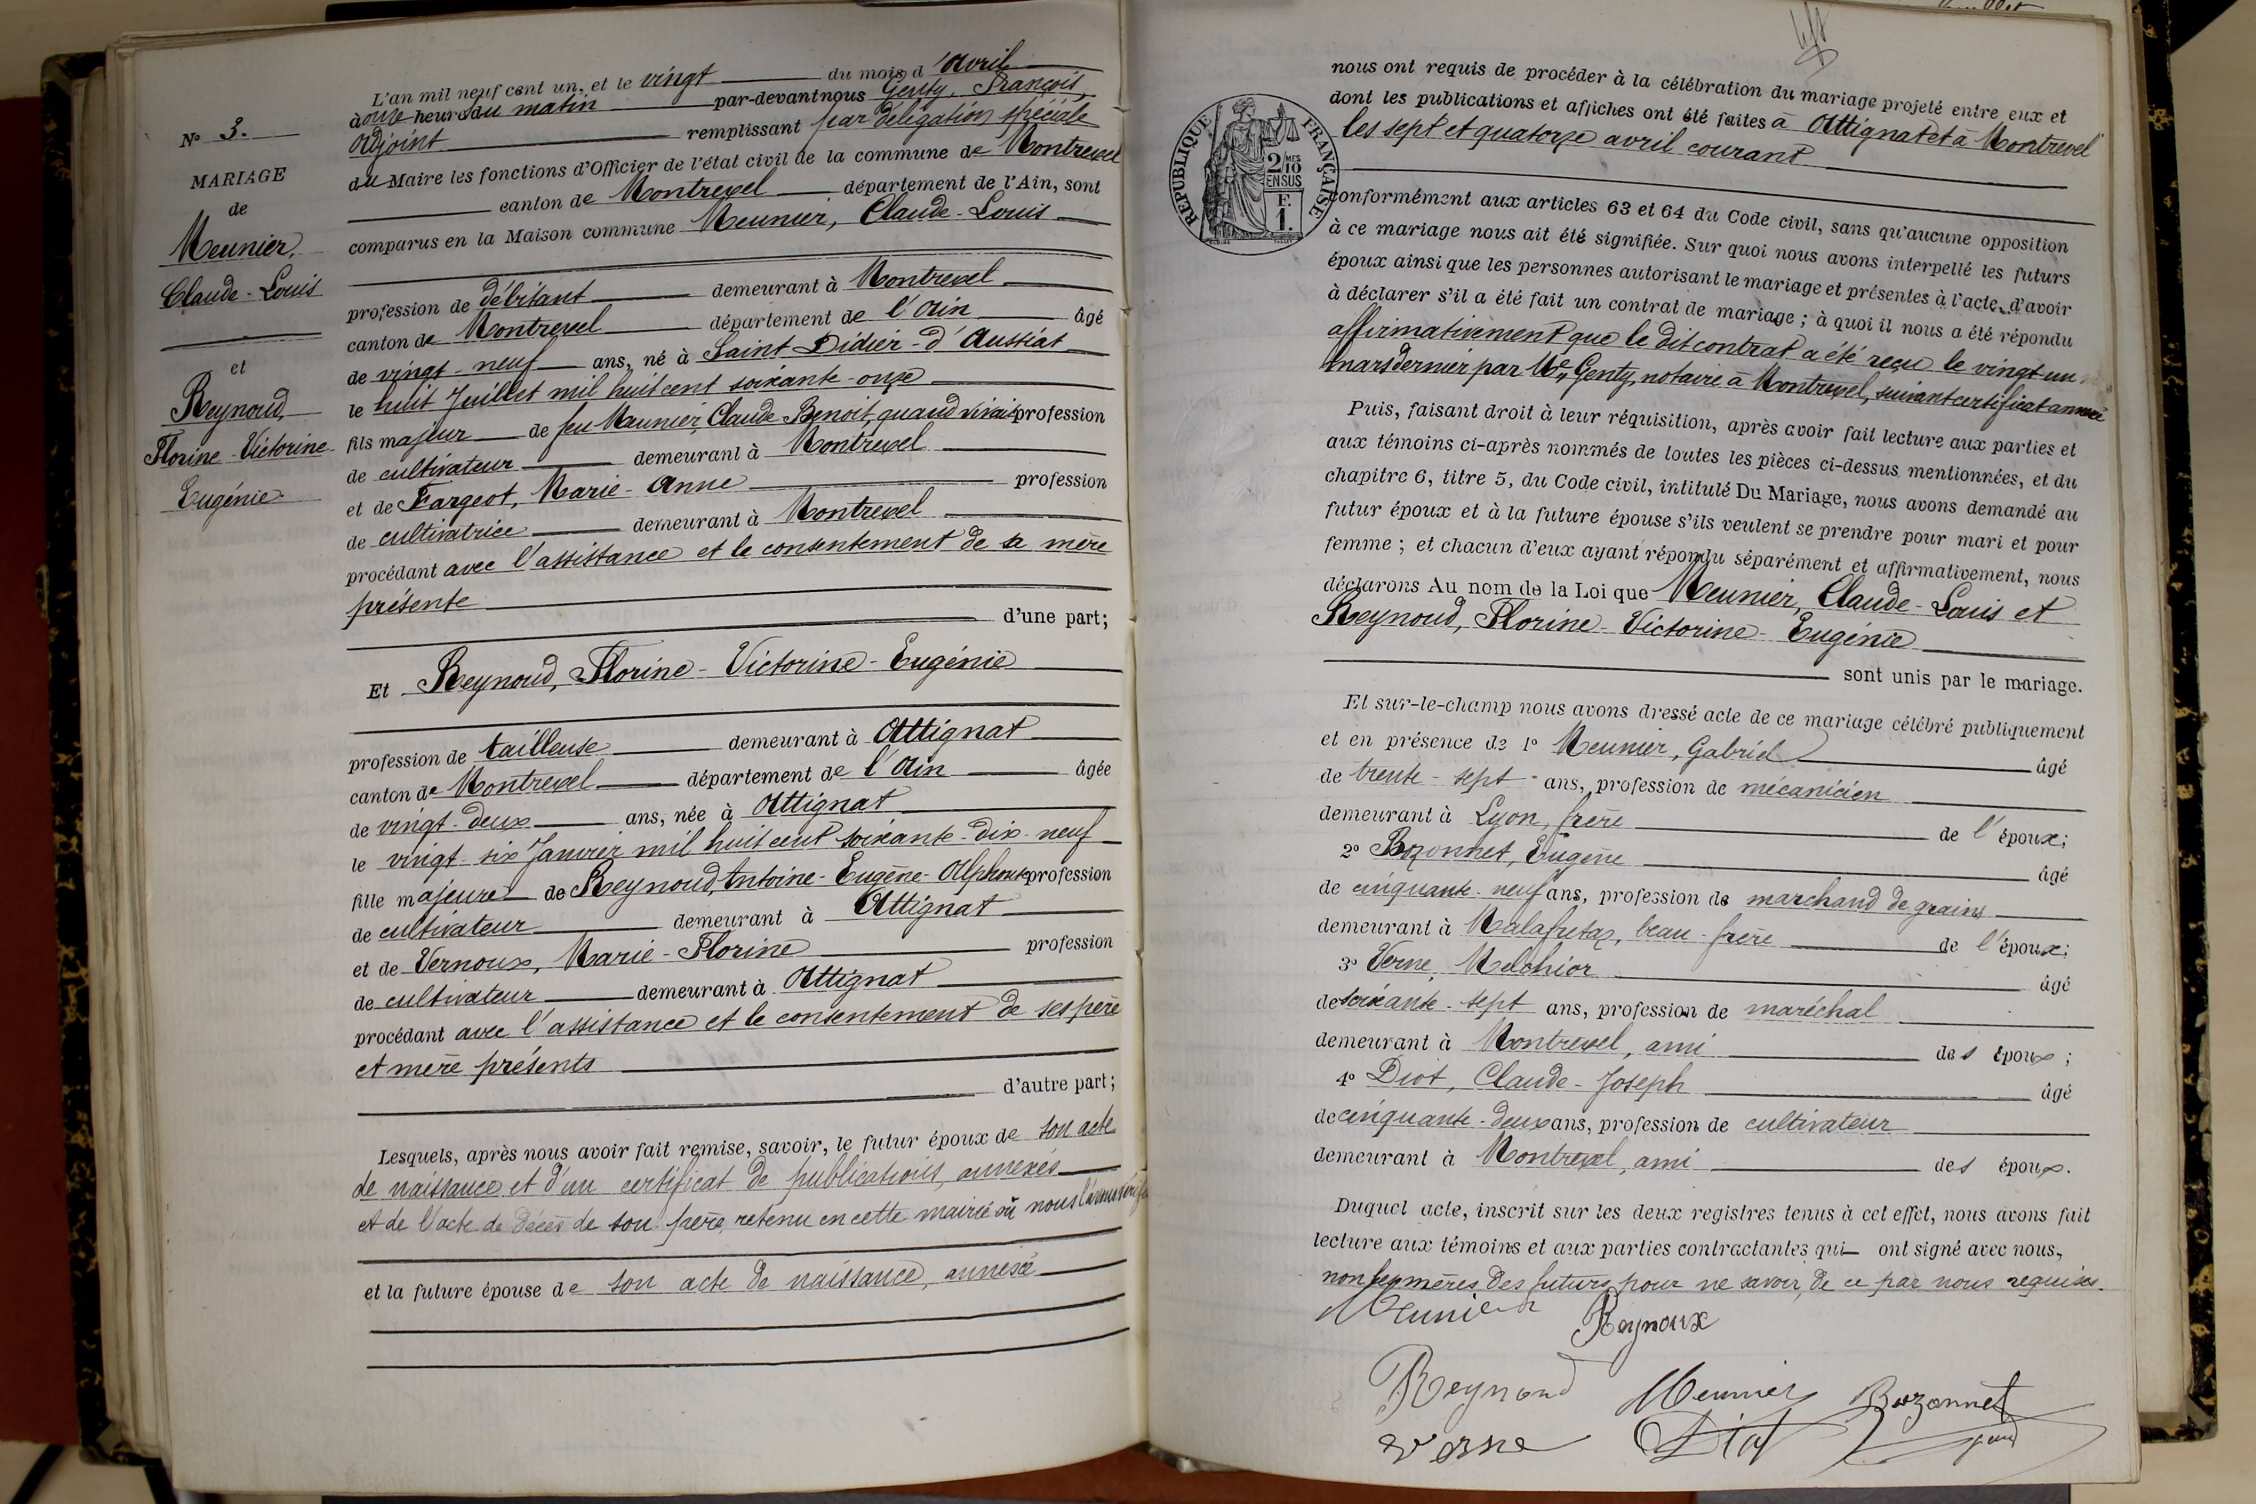 N° 3.
MARIAGE
de
Meunier,
Claude-Louis
et
Reynoud,
Florine-Victorine
Eugénie
L'an mil neuf cent un, et le vingt du mois d'Avril
à onze heures du matin par-devant nous Genty, François,
Adjoint remplissant par délégation spéciale
du Maire les fonctions d'Officier de l'état civil de la commune de Montrevel
canton de Montrevel département de l'Ain, sont
comparus en la Maison commune Meunier, Claude-Louis
profession de débitant demeurant à Montrevel
canton de Montrevel département de l'Ain âgé
de vingt-neuf ans, né à Saint Didier-d'Aussiat
le huit Juillet mil huit cent soixante-onze
fils majeur de feu Meunier, Claude Benoit, quand vivait profession
de cultivateur demeurant à Montrevel
et de Fargeot, Marie-Anne profession
de cultivatrice demeurant à Montrevel
procédant avec l'assistance et le consentement de sa mère
présente
d'une part;
Et Reynoud, Florine-Victorine-Eugénie
profession de tailleuse demeurant à Attignat
canton de Montrevel département de l'Ain âgée
de vingt-deux ans, née à Attignat
le vingt-six Janvier mil huit cent soixante-dix-neuf
fille majeure de Reynoud, Antoine-Eugène-Alphonse profession
de cultivateur demeurant à Attignat
et de Vernoux, Marie-Florine profession
de cultivateur demeurant à Attignat
procédant avec l'assistance et le consentement de ses père
et mère présents
d'autre part;
Lesquels, après nous avoir fait remise, savoir, le futur époux de son acte
de naissance et d'un certificat de publications, annexés
et de l'acte de décès de son père, retenu en cette mairie où nous l'avons vérifié
et la future épouse de son acte de naissance, annexé
RÉPUBLIQUE FRANÇAISE
2/10 MES
EN SUS
F.
1.
nous ont requis de procéder à la célébration du mariage projeté entre eux et
dont les publications et affiches ont été faites à Attignat et à Montrevel
les sept et quatorze avril courant
conformément aux articles 63 et 64 du Code civil, sans qu'aucune opposition
à ce mariage nous ait été signifiée. Sur quoi nous avons interpellé les futurs
époux ainsi que les personnes autorisant le mariage et présentes à l'acte, d'avoir
à déclarer s'il a été fait un contrat de mariage; à quoi il nous a été répondu
affirmativement que le dit contrat a été reçu le vingt-un
mars dernier par Me Genty, notaire à Montrevel, suivant certificat annexé
Puis, faisant droit à leur réquisition, après avoir fait lecture aux parties et
aux témoins ci-après nommés de toutes les pièces ci-dessus mentionnées, et du
chapitre 6, titre 5, du Code civil, intitulé Du Mariage, nous avons demandé au
futur époux et à la future épouse s'ils veulent se prendre pour mari et pour
femme; et chacun d'eux ayant répondu séparément et affirmativement, nous
déclarons Au nom de la Loi que Meunier, Claude-Louis et
Reynoud, Florine-Victorine-Eugénie
sont unis par le mariage.
Et sur-le-champ nous avons dressé acte de ce mariage célébré publiquement
et en présence de 1° Meunier, Gabriel âgé
de trente-sept ans, profession de mécanicien
demeurant à Lyon, frère de l'époux;
2° Bozonnet, Eugène âgé
de cinquante-neuf ans, profession de marchand de grains
demeurant à Malafretaz, beau-frère de l'époux;
3° Verne, Melchior âgé
de soixante-sept ans, profession de maréchal
demeurant à Montrevel, ami des époux;
4° Diot, Claude-Joseph âgé
de cinquante-deux ans, profession de cultivateur
demeurant à Montrevel, ami des époux.
Duquel acte, inscrit sur les deux registres tenus à cet effet, nous avons fait
lecture aux témoins et aux parties contractantes qui ont signé avec nous,
non les mères des futurs pour ne savoir, de ce par nous requises.
Meunier Reynoux
Reynoud Meunier Bozonnet
Verne Diot